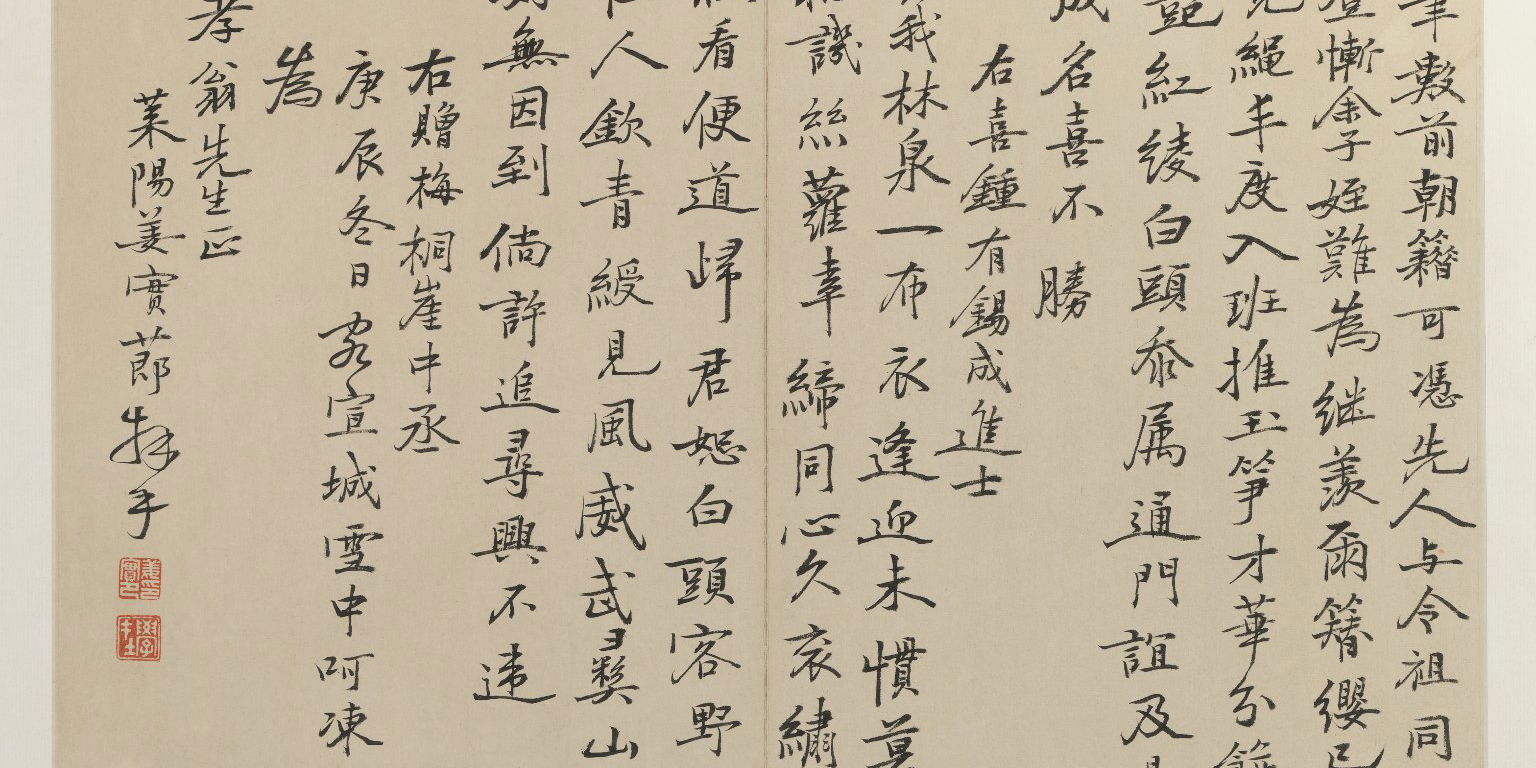 數前朝籍可憑先人与令祖同
慚余子姪難為继羡爾簪纓已
繩手度入班推玉笋才華分
紅绫白頭忝属通門誼及
成名喜不勝
右喜鍾有錫成進士
我林泉一布衣逢迎未慣莫
識絲蘿幸締同心久衮繡
看便道歸君恕白頭客野
人欽青綬見風威武彛山
無因到倘許追尋興不違
右贈梅桐崖中丞
庚辰冬日客宣城雪中呵凍
為
孝翁先生正
莱陽姜實莭拜手